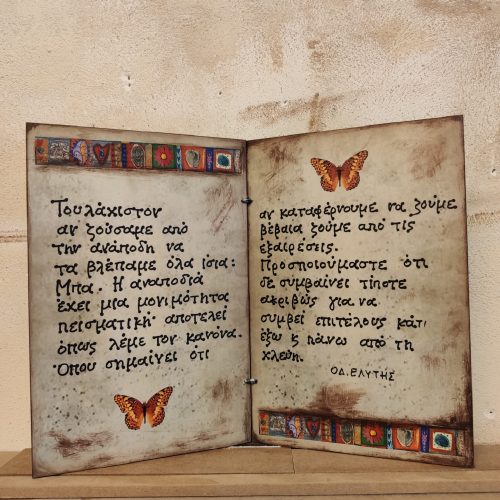 Τουλάχιστον
αν ζούσαμε από
την ανάποδη να
τα βλέπαμε όλα ίσια:
Μπα. Η αναποδιά
έχει μια μονιμότητα
πεισματική· αποτελεί
όπως λέμε τον κανόνα.
Όπου σημαίνει ότι
αν καταφέρνουμε να ζούμε
βέβαια ζούμε από τις
εξαιρέσεις.
Προσποιούμαστε ότι
δε συμβαίνει τίποτε
ακριβώς για να
συμβεί επιτέλους κάτι
έξω ς πάνω από τη
χλεύη.
ΟΔ. ΕΛΥΤΗΣ